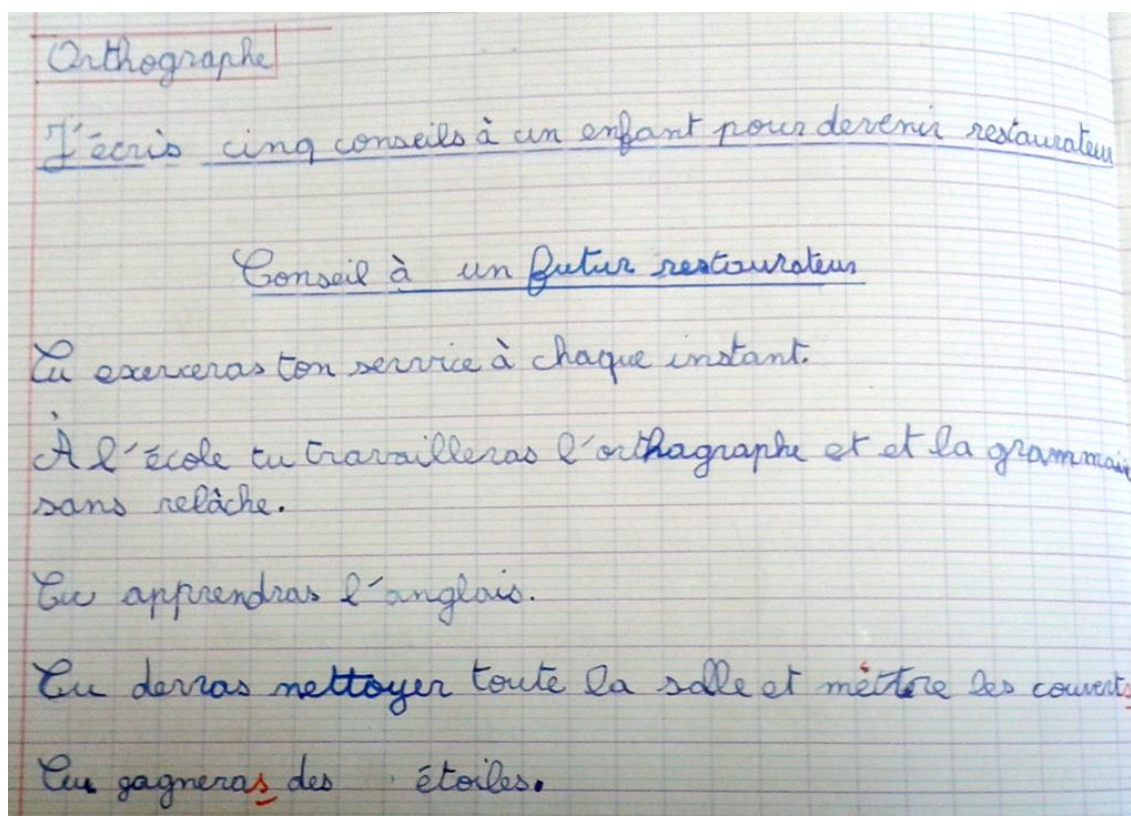 Orthographe
J'écris cinq conseils à un enfant pour devenir restaurateur
Conseil à un futur restaurateur
Tu exerceras ton service à chaque instant.
À l'école tu travailleras l'orthagraphe et et la grammair
sans relâche.
Tu apprendras l'anglais.
Tu devras nettoyer toute la salle et mettre les couverts
Tu gagneras des étoiles.